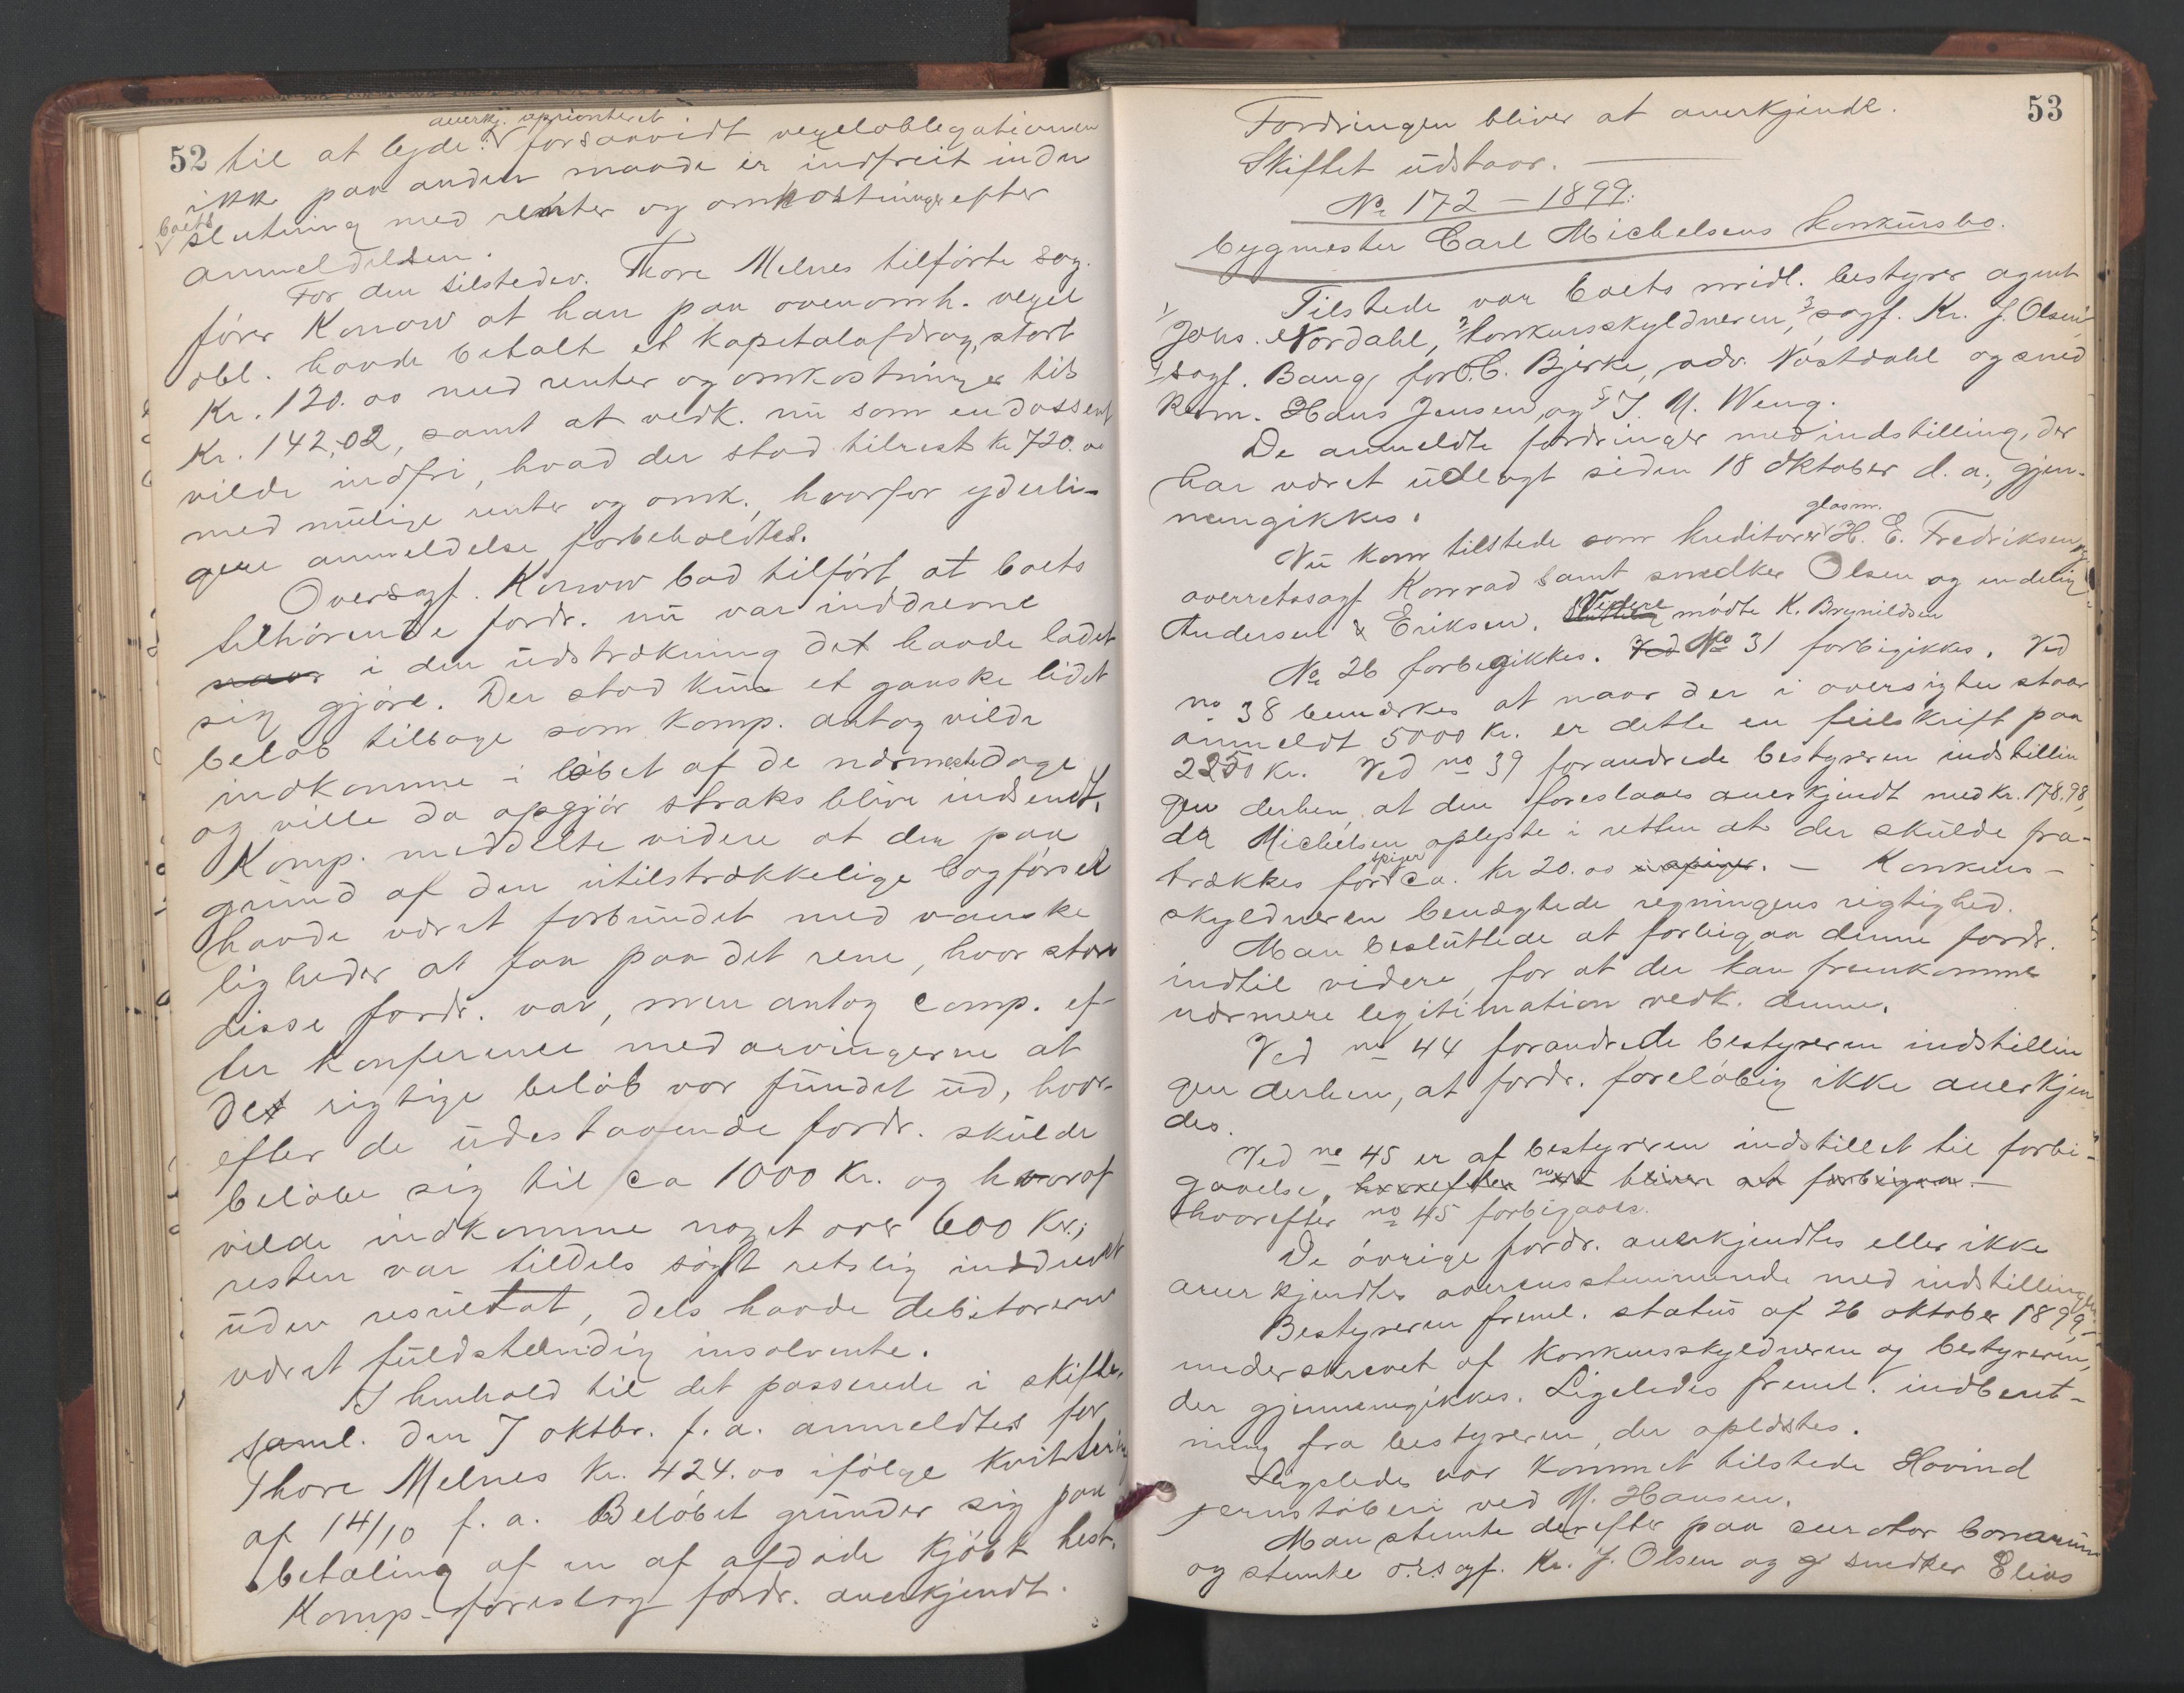 52
auerkj. uprioriteret
til at lyde: forsaavidt vexeloblegationen
ikke paa anden maade er indfreit inden
boets
slutning med renter og omkostninger efter
anmeldelsen.
For den tilstedev. Thore Melnes tilførte sag-
fører Konow at han paa ovenomh. vexel
obl. havde betalt et kapitalafdrag, stort
Kr. 120.00 med renter og omkostninger tils
Kr. 142,02, samt at vedk. nu som endossent
vilde indfri, hvad der stod tilrest kr 720.00
med mulige renter og omk., hvorfor yderli-
gere anmeldelse forbeholdtes.
Oversagf. Konow bad tilført at boets
tilhørende fordr. nu var inddrevne
i den udstrækning det havde ladet
sig gjøre. Der stod kun et ganske lidet
beløb tilbage som Komp. antog vilde
indkomme i løbet af de nærmeste dage
og ville da opgjør straks blive indsendt.
Komp. meddelte videre at den paa
grund af den utilstrækkelige bogførsel
havde været forbundet med vanske
ligheder at faa paa det rene, hvor store
disse fordr. var, men antog Comp. ef-
ter konference med arvingerne at
det rigtige beløb var fundet ud, hvor-
efter de udestaaende fordr. skulde
beløbe sig til ca 1000 Kr. og hvoraf
vilde indkomme noget over 600 Kr.;
resten var tildels søgt retslig inddrevet
uden resultat, dels havde debitorerne
været fuldstændig insolvente.
I henhold til det passerede i skifte-
saml. den 7 oktbr. f. a. anmeldtes for
Thore Melnes Kr. 424.00 ifølge kvittering
af 14/10 f. a. Beløbet grunder sig paa
betaling af en af afdøde kjøbt hest.
Komp. foreslog fordr. auerkjendt.
53
Fordringen bliver at anerkjende.
Skiftet udstaar.
No 172 - 1899:
bygmester Carl Michelsens konkursbo.
Tilstede var boets midl. bestyrer agent
1/ Johs. Nordahl, 2/ konkursskyldneren, 3/ sagf. Kr. J. Olsen,
4/ sagf. Bang for C. Bjerke, adv. Nøstdahl og smed
Rom. Hans Jensen, og 5/ J. N. Weng.
De anmeldte fordringer med indstilling, der
har været udlagt siden 18 oktober d. a., gjen-
nemgikkes.
glasm.
Nu kom tilstede som kreditorer H. E. Fredriksen
overretssagf Konrad samt snedker Olsen og endelig
Andersen & Eriksen. Videre mødte K. Brynildsen
No 26 forbigikkes. Ved No 31 forbigikkes. Ved
no 38 bemærkes at naar der i oversigten staar
anmeldt 5000 kr. er dette en feilskrift paa
2250 kr. Ved no 39 forandrede bestyreren indstillin
gen derhen, at den foreslaaes auerkjendt med kr. 178,98,
da Michelsen oplyste i retten at der skulde fra-
spiger
trækkes for ca. kr 20.00 i spiger. - Konkurs-
skyldneren benægtede regningens rigtighed.
Man besluttede at forbigaa denne fordr.
indtil videre, for at der kan fremkomme
nærmere legitimation vedk. denne.
Ved no 44 forandrede bestyreren indstillin
gen derhen, at fordr. foreløbig ikke auerkjen
des.
Ved no 45 er af bestyreren indstillet til forbi-
gaaelse, hvorefter no 45 bliver at forbigaa. -
hvorefter no 45 forbigaaes.
De øvrige fordr. auerkjendtes eller ikke
auerkjendtes overensstemmende med indstillingen.
Bestyreren freml. status af 26 oktober 1899,
underskrevet af konkursskyldneren og bestyreren,
der gjennemgikkes. Ligeledes freml. indberet-
ning fra bestyreren, der oplæstes.
Ligeledes var kommet tilstede Hovind
jernstøberi ved M. Hansen.
Man stemte derefter paa curator bonorum
og stemte o.r.sagf. Kr. J. Olsen og snedker Elias